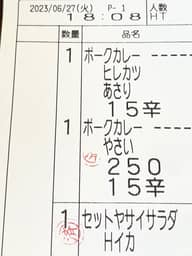 2023/06/27(火) P- 1 人数
18:08 HT
数量
1 ポークカレー ----
ヒレカツ
あさり
15辛
1 ポークカレー ----
やさい
250
15辛
1 セットヤサイサラダ
Hイカ